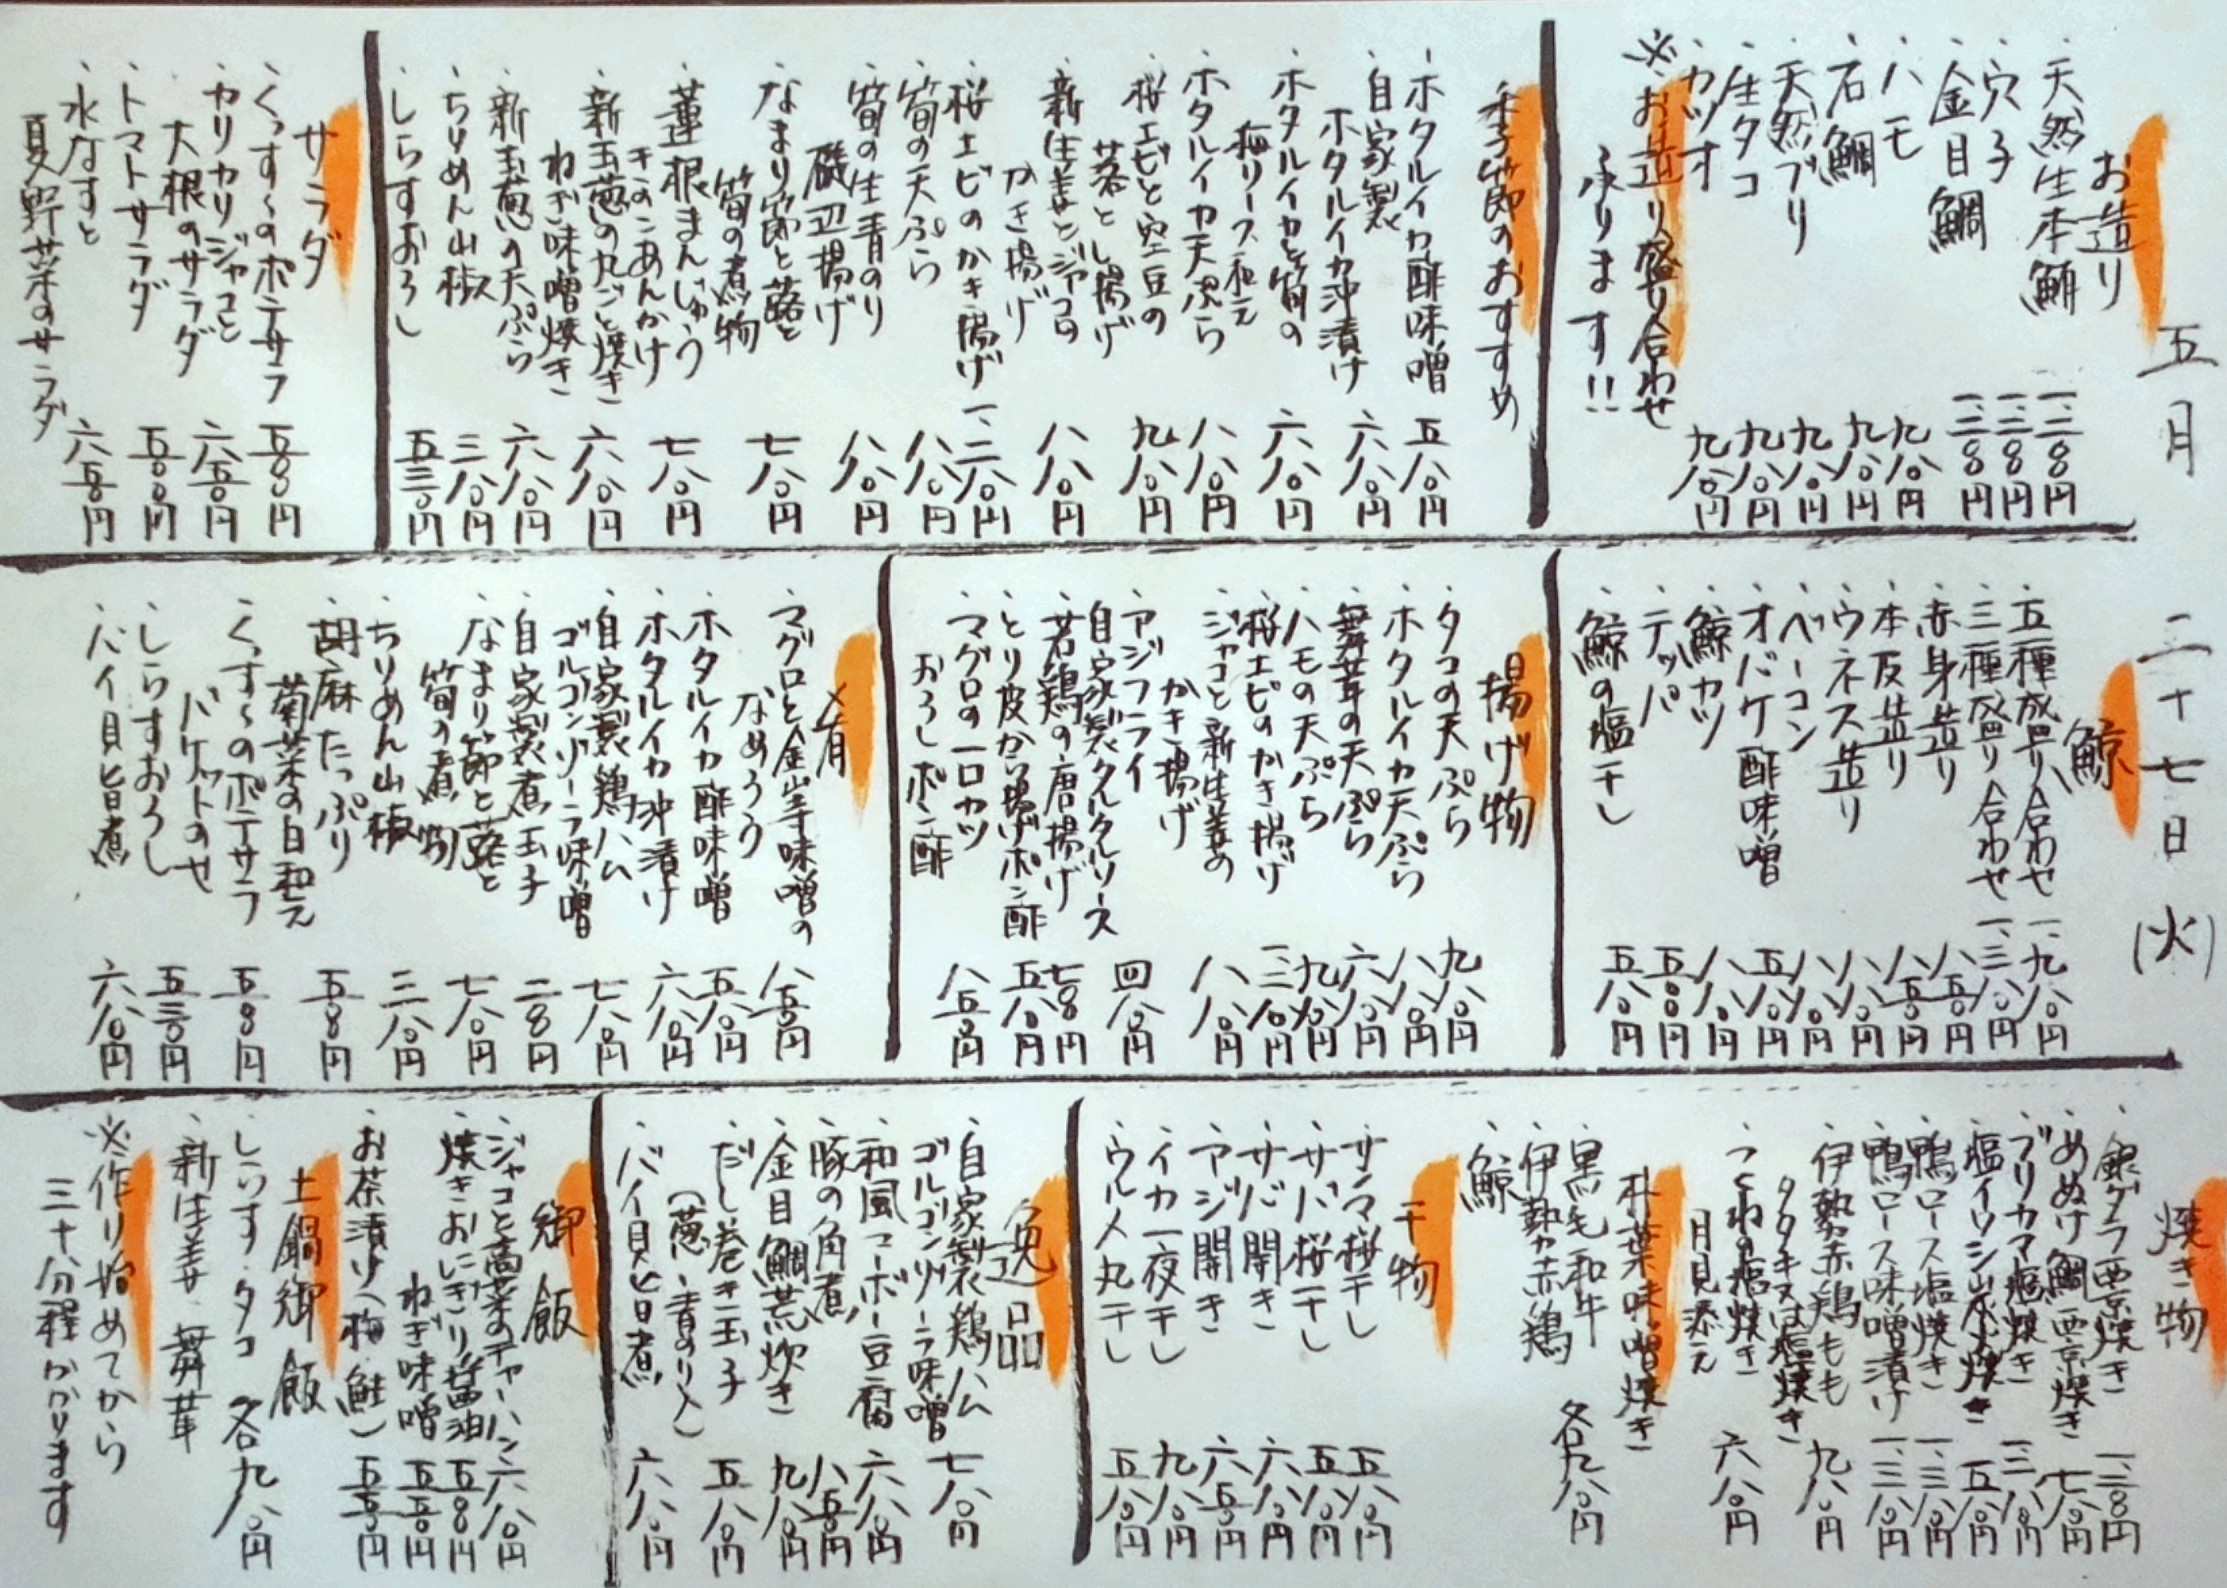 五月 二十七日 (火)
お造り
・天然生本鮪 一、三八〇円
・穴子 一、三八〇円
・金目鯛 一、三八〇円
・ハモ 九八〇円
・石鯛 九八〇円
・天然ブリ 九八〇円
・生タコ 九八〇円
・カツオ 九八〇円
※お造り盛り合わせ
承ります!!
季節のおすすめ
・ホタルイカ酢味噌 五八〇円
・自家製
ホタルイカ沖漬け 六八〇円
・ホタルイカと筍の
梅リース和え 六八〇円
・ホタルイカ天ぷら 八八〇円
・桜エビと空豆の
落とし揚げ 九八〇円
・新生姜とジャコの
かき揚げ 八八〇円
・桜エビのかき揚げ 一、二八〇円
・筍の天ぷら 八八〇円
・筍の生青のり
磯辺揚げ 八八〇円
・なまり節と蕗と
筍の煮物 七八〇円
・蓮根まんじゅう
きのこあんかけ 七八〇円
・新玉葱の丸ごと焼き
ねぎ味噌焼き 六八〇円
・新玉葱の天ぷら 六八〇円
・ちりめん山椒 三八〇円
・しらすおろし 五三〇円
サラダ
・くっす〜のポテサラ 五八〇円
・カリカリジャコと
大根のサラダ 六五〇円
・トマトサラダ 五〇〇円
・水なすと
夏野菜のサラダ 六五〇円
鯨
・五種盛り合わせ 一、九八〇円
・三種盛り合わせ 一、三八〇円
・赤身造り 八五〇円
・本皮造り 八五〇円
・ウネス造り 八八〇円
・ベーコン 八八〇円
・オバケ酢味噌 五八〇円
・鯨カツ 八八〇円
・テッパ 五〇〇円
・鯨の塩干し 五八〇円
揚げ物
・タコの天ぷら 九八〇円
・ホタルイカ天ぷら 八八〇円
・舞茸の天ぷら 六八〇円
・ハモの天ぷら 九八〇円
・桜エビのかき揚げ 一、二八〇円
・ジャコと新生姜の
かき揚げ 八八〇円
・アジフライ
自家製タルタルソース 四八〇円
・若鶏の唐揚げ 七八〇円
・とり皮から揚げポン酢 五八〇円
・マグロの一口カツ
おろしポン酢 八五〇円
肴
・マグロと金山寺味噌の
なめろう 八五〇円
・ホタルイカ酢味噌 五八〇円
・ホタルイカ沖漬け 六八〇円
・自家製鶏ハム
ゴルゴンゾーラ味噌 七八〇円
・自家製煮玉子 二八〇円
・なまり節と蕗と
筍の煮物 七八〇円
・ちりめん山椒 三八〇円
・胡麻たっぷり
菊菜の白和え 五八〇円
・くっす〜のポテサラ
バケットのせ 五八〇円
・しらすおろし 五三〇円
・バイ貝旨煮 六八〇円
焼き物
・銀ダラ西京焼き 一、三八〇円
・めぬけ鯛西京焼き 七八〇円
・ブリカマ塩焼き 一、三八〇円
・塩イワシ炭火焼き 五八〇円
・鴨ロース塩焼き 一、三八〇円
・鴨ロース味噌漬け 一、三八〇円
・伊勢赤鶏もも
タタキ又は塩焼き 九八〇円
・つくねの塩焼き
月見添え 六八〇円
朴葉味噌焼き
・黒毛和牛
・伊勢赤鶏 各九八〇円
・鯨
干物
・サンマ桜干し 五八〇円
・サバ桜干し 五八〇円
・サバ開き 六八〇円
・アジ開き 六五〇円
・イカ一夜干し 九八〇円
・ウルメ丸干し 五八〇円
逸品
・自家製鶏ハム
ゴルゴンゾーラ味噌 七八〇円
・和風マーボー豆腐 六八〇円
・豚の角煮 八五〇円
・金目鯛荒炊き 九八〇円
・だし巻き玉子
(葱・青のり入) 五八〇円
・バイ貝旨煮 六八〇円
御飯
・ジャコと高菜のチャーハン 六八〇円
・焼きおにぎり 醤油 五八〇円
ねぎ味噌 五五〇円
・お茶漬け(梅・鮭) 五五〇円
土鍋御飯
・しらす・タコ 各九八〇円
・新生姜・舞茸
※作り始めてから
三十分程かかります